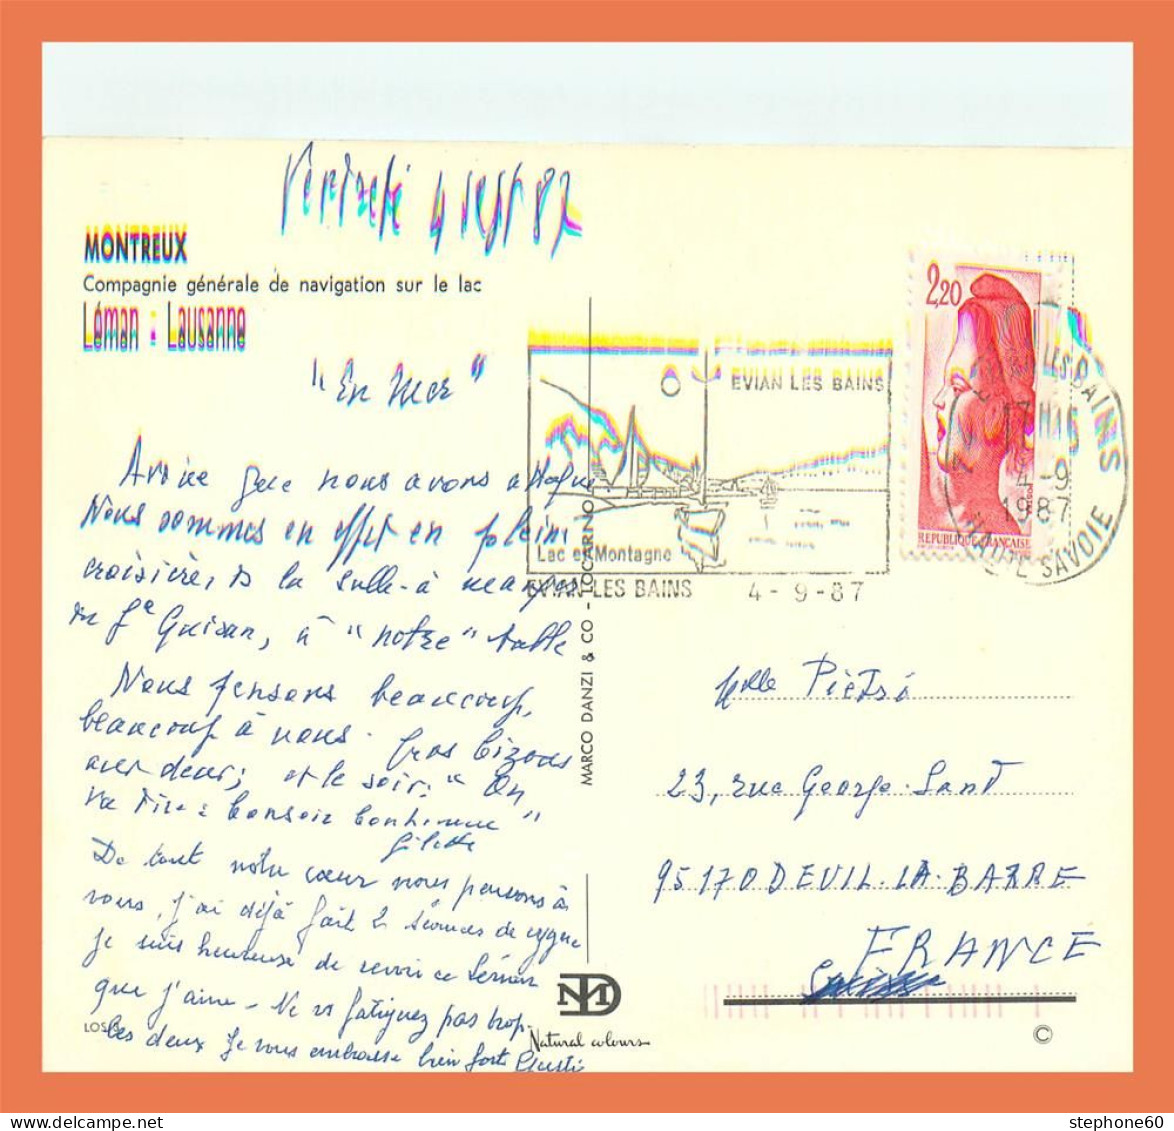 Vendredi 4 sept 87
MONTREUX
Compagnie générale de navigation sur le lac
Léman : Lausanne
"En mer"
que nous avons
Nous sommes en effet en pleine
croisière, ds la salle-à manger
du Gal Guisan, à "notre" table
Nous pensons beaucoup,
beaucoup à vous. Gros bizous
et le soir: "On
va dire: bonsoir bonhomme"
De tout notre cœur nous pensons à
vous, j'ai déjà fait 2 séances de
je suis heureuse de revoir ce Léman
que j'aime - Ne vs fatiguez pas trop.
les deux je vous embrasse bien fort
LOS/8
MARCO DANZI & CO - LOCARNO
Natural colours
©
EVIAN LES BAINS
Lac et Montagne
EVIAN LES BAINS 4-9-87
2,20
REPUBLIQUE FRANÇAISE
LES BAINS
17 H15
4-9
1987
HAUTE SAVOIE
Melle Piétri
23, rue George-Sand
95170 DEUIL-LA-BARRE
FRANCE
Suisse
stephone60